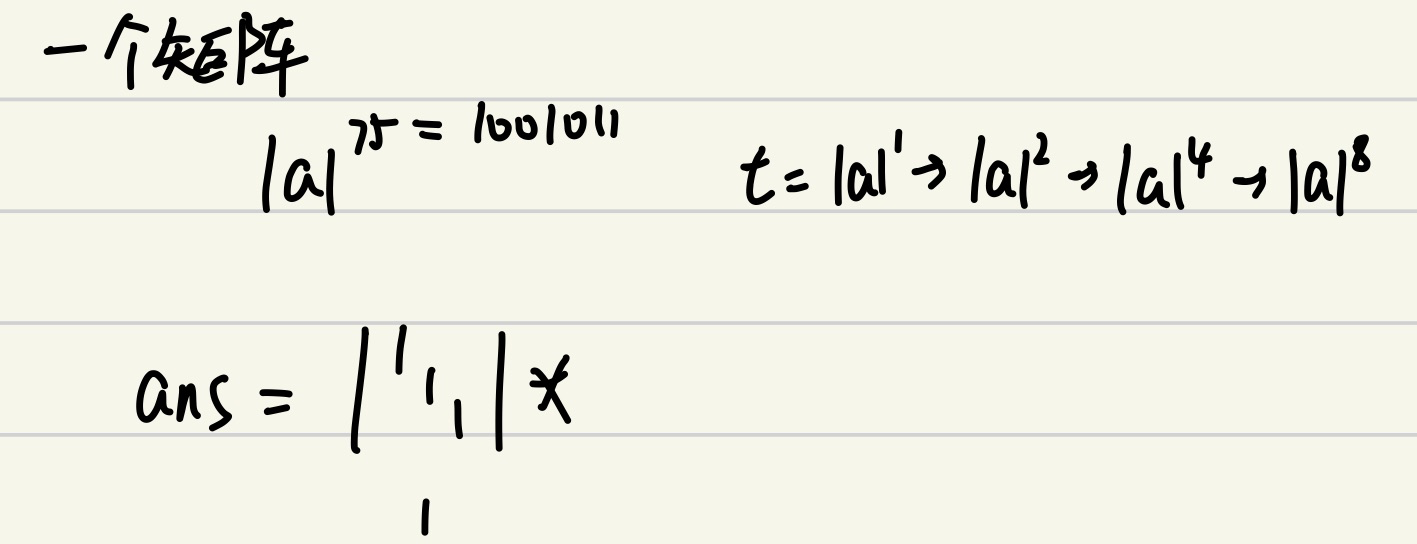 一个矩阵
|a|^75 = 1001011
t = |a|^1 → |a|^2 → |a|^4 → |a|^8
ans = | 1 1 1 | *
1